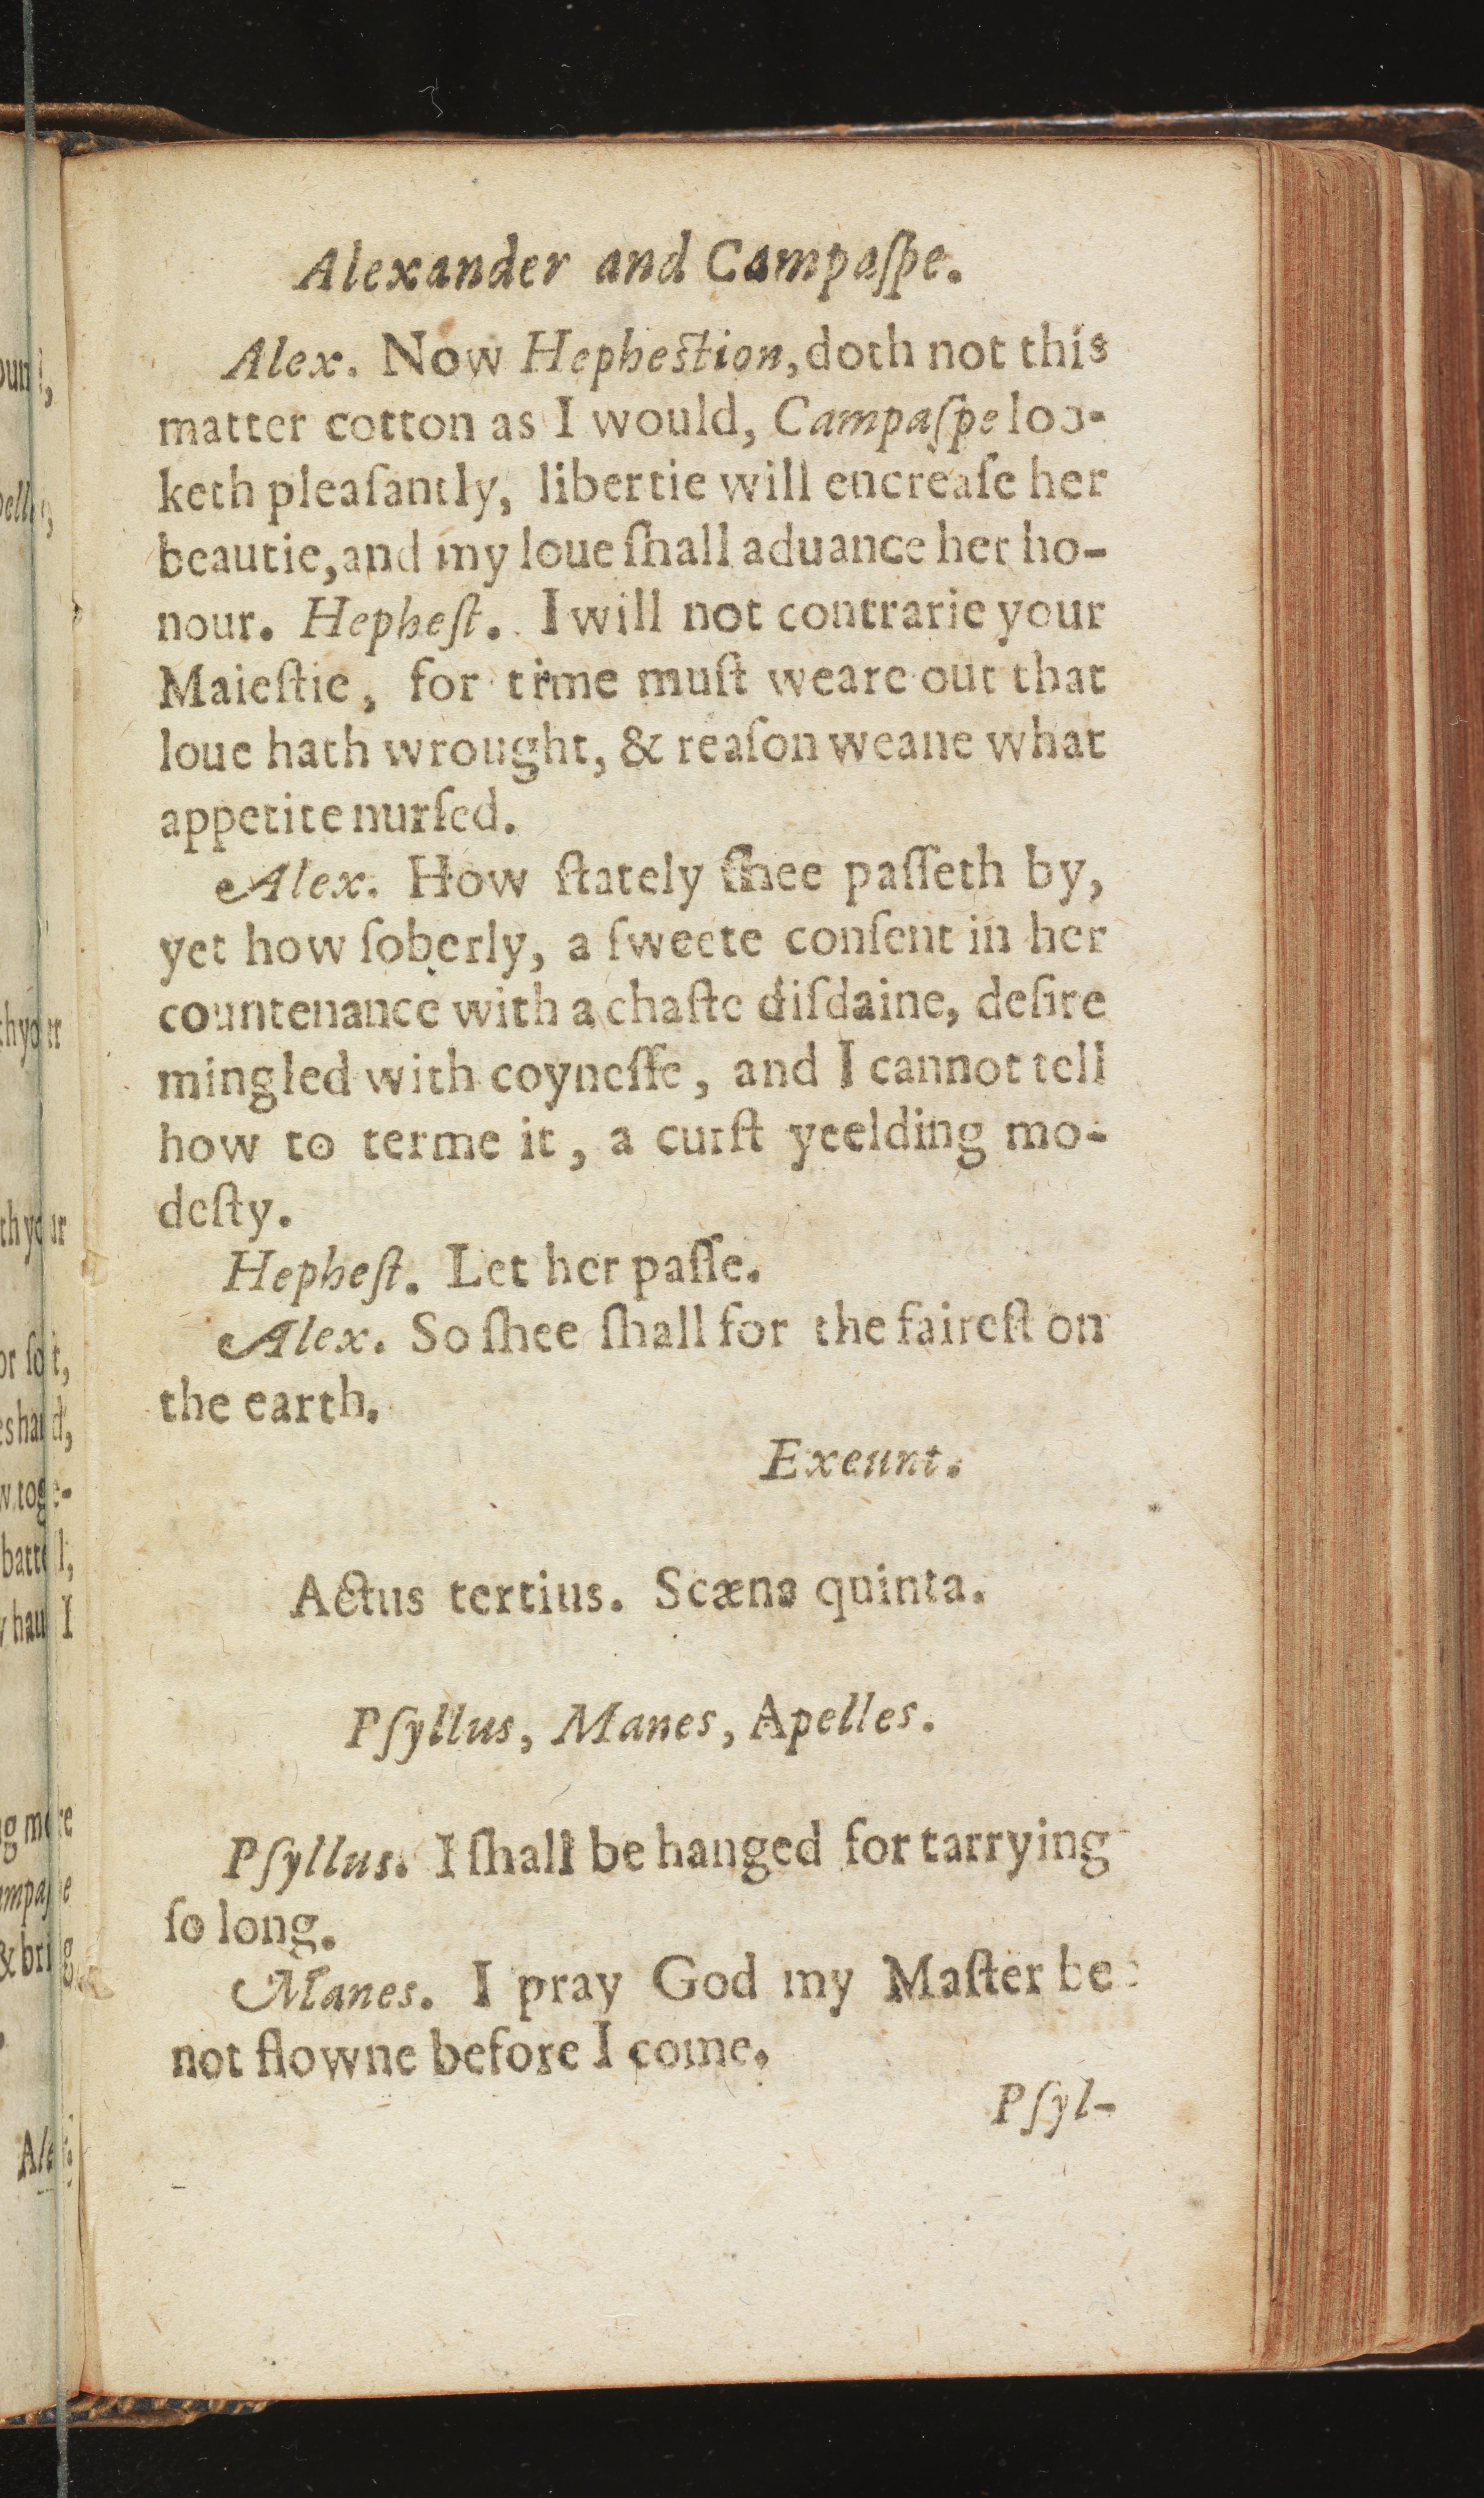 Alexander and Campaſpe.
Alex. Now Hepheſtion, doth not this
matter cotton as I would, Campaſpe loo-
keth pleaſantly, libertie will encreaſe her
beautie, and my loue ſhall aduance her ho-
nour. Hepheſt. I will not contrarie your
Maieſtie, for time muſt weare out that
loue hath wrought, & reaſon weane what
appetite nurſed.
Alex. How ſtately ſhee paſſeth by,
yet how ſoberly, a ſweete conſent in her
countenance with a chaſte diſdaine, deſire
mingled with coyneſſe, and I cannot tell
how to terme it, a curſt yeelding mo-
deſty.
Hepheſt. Let her paſſe.
Alex. So ſhee ſhall for the faireſt on
the earth.
Exeunt.
Actus tertius. Scæna quinta.
Pſyllus, Manes, Apelles.
Pſyllus. I ſhall be hanged for tarrying
ſo long.
Manes. I pray God my Maſter be
not flowne before I come.
Pſyl-